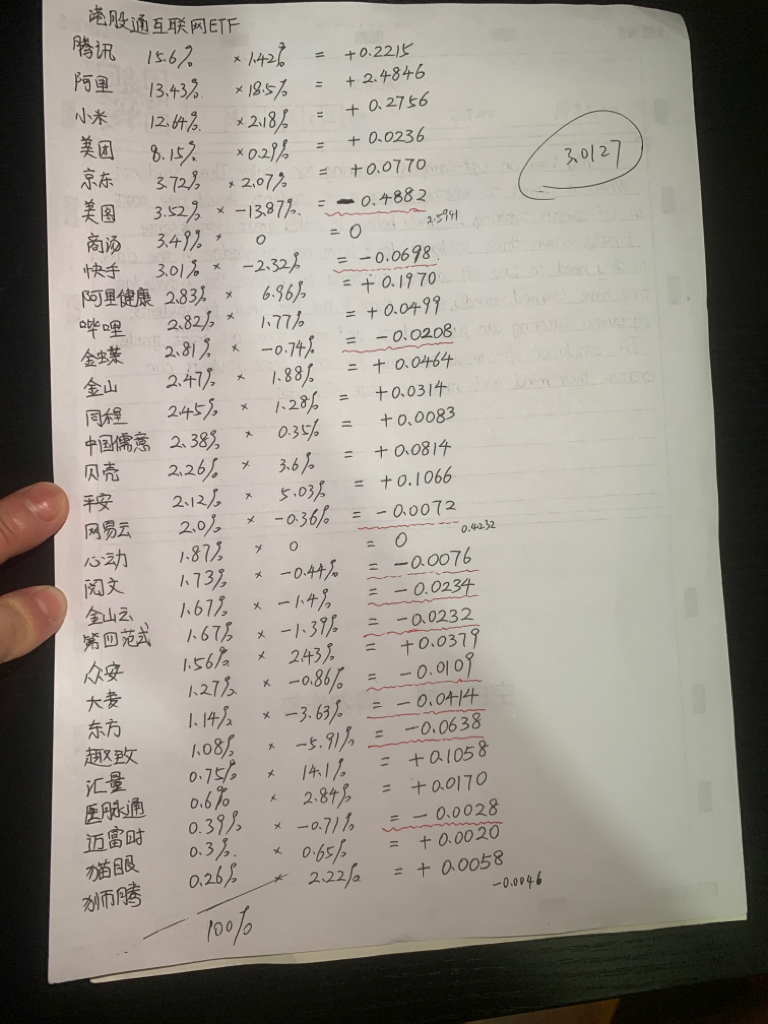 港股通互联网ETF
腾讯 15.6% × 1.42% = +0.2215
阿里 13.43% × 18.5% = +2.4846
小米 12.64% × 2.18% = +0.2756
美团 8.15% × 0.29% = +0.0236
3.0127
京东 3.72% × 2.07% = +0.0770
美图 3.52% × -13.87% = -0.4882
商汤 3.49% × 0 = 0 2.5941
快手 3.01% × -2.32% = -0.0698
阿里健康 2.83% × 6.96% = +0.1970
哔哩 2.82% × 1.77% = +0.0499
金蝶 2.81% × -0.74% = -0.0208
金山 2.47% × 1.88% = +0.0464
同程 2.45% × 1.28% = +0.0314
中国儒意 2.38% × 0.35% = +0.0083
贝壳 2.26% × 3.6% = +0.0814
平安 2.12% × 5.03% = +0.1066
网易云 2.0% × -0.36% = -0.0072
心动 1.87% × 0 = 0 0.4232
阅文 1.73% × -0.44% = -0.0076
金山云 1.67% × -1.4% = -0.0234
第四范式 1.67% × -1.39% = -0.0232
众安 1.56% × 2.43% = +0.0379
大麦 1.27% × -0.86% = -0.0109
东方 1.14% × -3.63% = -0.0414
趣致 1.08% × -5.91% = -0.0638
汇量 0.75% × 14.1% = +0.1058
医脉通 0.6% × 2.84% = +0.0170
迈富时 0.39% × -0.71% = -0.0028
猫眼 0.3% × 0.65% = +0.0020
狮腾 0.26% × 2.22% = +0.0058
-0.0046
100%